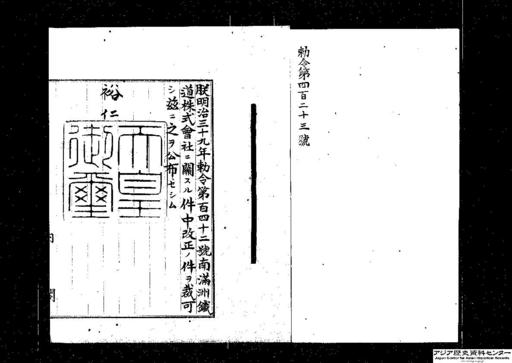 勅令第四百二十三號
朕明治三十九年勅令第百四十二號南滿洲鐵
道株式會社ニ關スル件中改正ノ件ヲ裁可
シ玆ニ之ヲ公布セシム
裕仁
天皇
御璽
内
閣
アジア歴史資料センター
Japan Center for Asian Historical Records